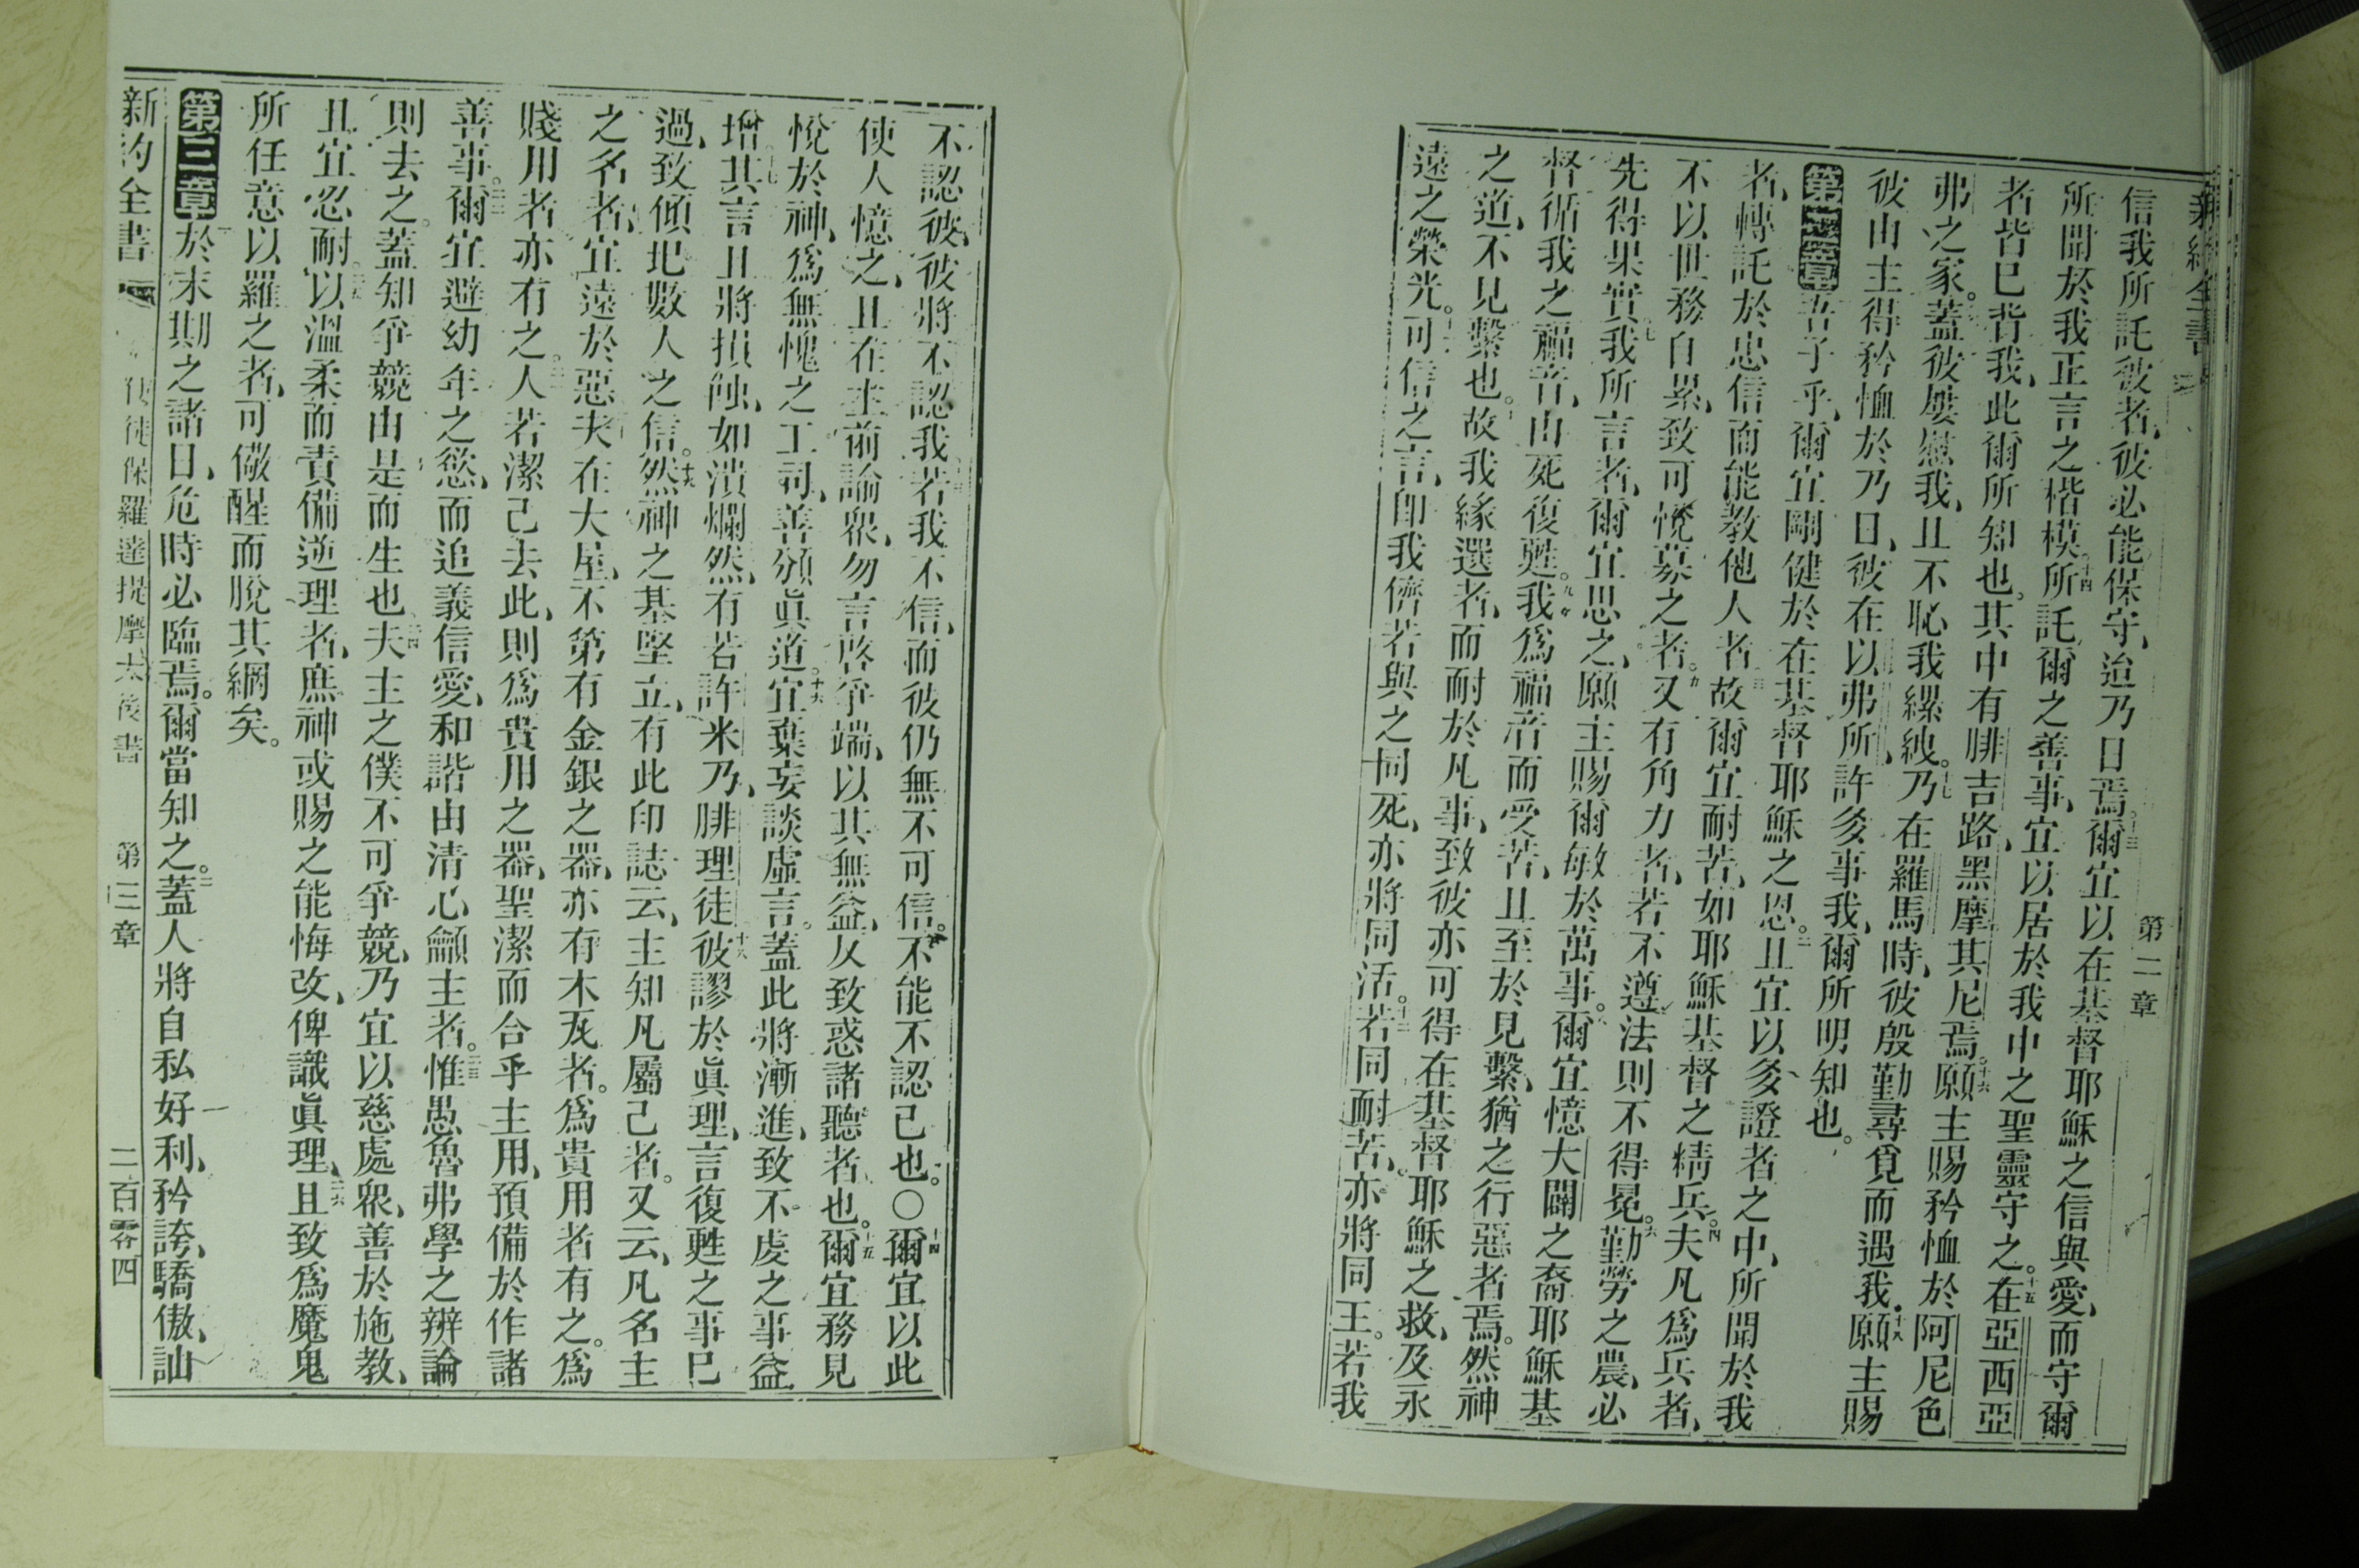 新約全書
第二章
信我所託彼者、彼必能保守、迨乃日焉。十三爾宜以在基督耶穌之信與愛、而守爾
所聞於我正言之楷模。十四所託爾之善事、宜以居於我中之聖靈守之。十五在亞西亞
者皆已背我、此爾所知也。其中有腓吉路、黑摩其尼焉。十六願主賜矜恤於阿尼色
弗之家。蓋彼屢慰我、且不恥我縲絏。十七乃在羅馬時、彼殷勤尋覓而遇我。十八願主賜
彼由主得矜恤於乃日、彼在以弗所、許多事我、爾所明知也。
第二章 吾子乎、爾宜剛健於在基督耶穌之恩。二且宜以多證者之中、所聞於我
者、轉託於忠信而能教他人者。三故爾宜耐苦、如耶穌基督之精兵。四夫凡為兵者、
不以世務自累、致可悅募之者。五又有角力者、若不遵法則不得冕。六勤勞之農、必
先得果實。七我所言者、爾宜思之、願主賜爾敏於萬事。八爾宜憶大闢之裔耶穌基
督循我之福音、由死復甦。九我為福音而受苦、且至於見繫、猶之行惡者焉。然神
之道、不見繫也。十故我緣選者、而耐於凡事、致彼亦可得在基督耶穌之救、及永
遠之榮光。十一可信之言、即我儕若與之同死、亦將同活。十二若同耐苦、亦將同王。若我
不認彼、彼將不認我。十三若我不信、而彼仍無不可信。不能不認己也。〇十四爾宜以此
使人憶之、且在主前諭眾、勿言啓爭端、以其無益、反致惑諸聽者也。十五爾宜務見
悅於神、為無愧之工司、善頒眞道。十六宜棄妄談虛言。蓋此將漸進、致不虔之事益
增。十七其言且將損蝕、如潰爛然、有若許米乃、腓理徒。十八彼謬於眞理、言復甦之事已
過、致傾圮數人之信。十九然神之基堅立、有此印誌云、主知凡屬己者。又云、凡名主
之名者、宜遠於惡。二十夫在大屋、不第有金銀之器、亦有木瓦者。為貴用者有之。為
賤用者亦有之。二一人若潔己去此、則為貴用之器、聖潔而合乎主用、預備於作諸
善事。二二爾宜避幼年之慾、而追義信愛、和諧由清心龥主者。二三惟愚魯弗學之辨論
則去之。蓋知爭競由是而生也。二四夫主之僕不可爭競、乃宜以慈處眾、善於施教、
且宜忍耐。二五以溫柔而責備逆理者、庶神或賜之能悔改、俾識眞理、二六且致為魔鬼
所任意以羅之者、可儆醒而脫其網矣。
第三章 於末期之諸日、危時必臨焉。爾當知之。二蓋人將自私好利、矜誇、驕傲、訕
新約全書 使徒保羅達提摩太後書 第三章 二百零四